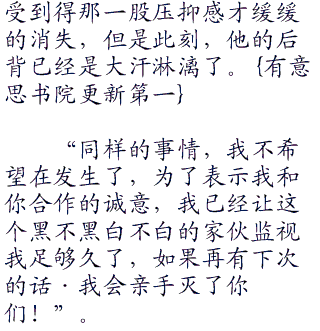 受到得那一股压抑感才缓缓
的消失，但是此刻，他的后
背已经是大汗淋漓了。{有意
思书院更新第一}
“同样的事情，我不希
望在发生了，为了表示我和
你合作的诚意，我已经让这
个黑不黑白不白的家伙监视
我足够久了，如果再有下次
的话·我会亲手灭了你
们！”。